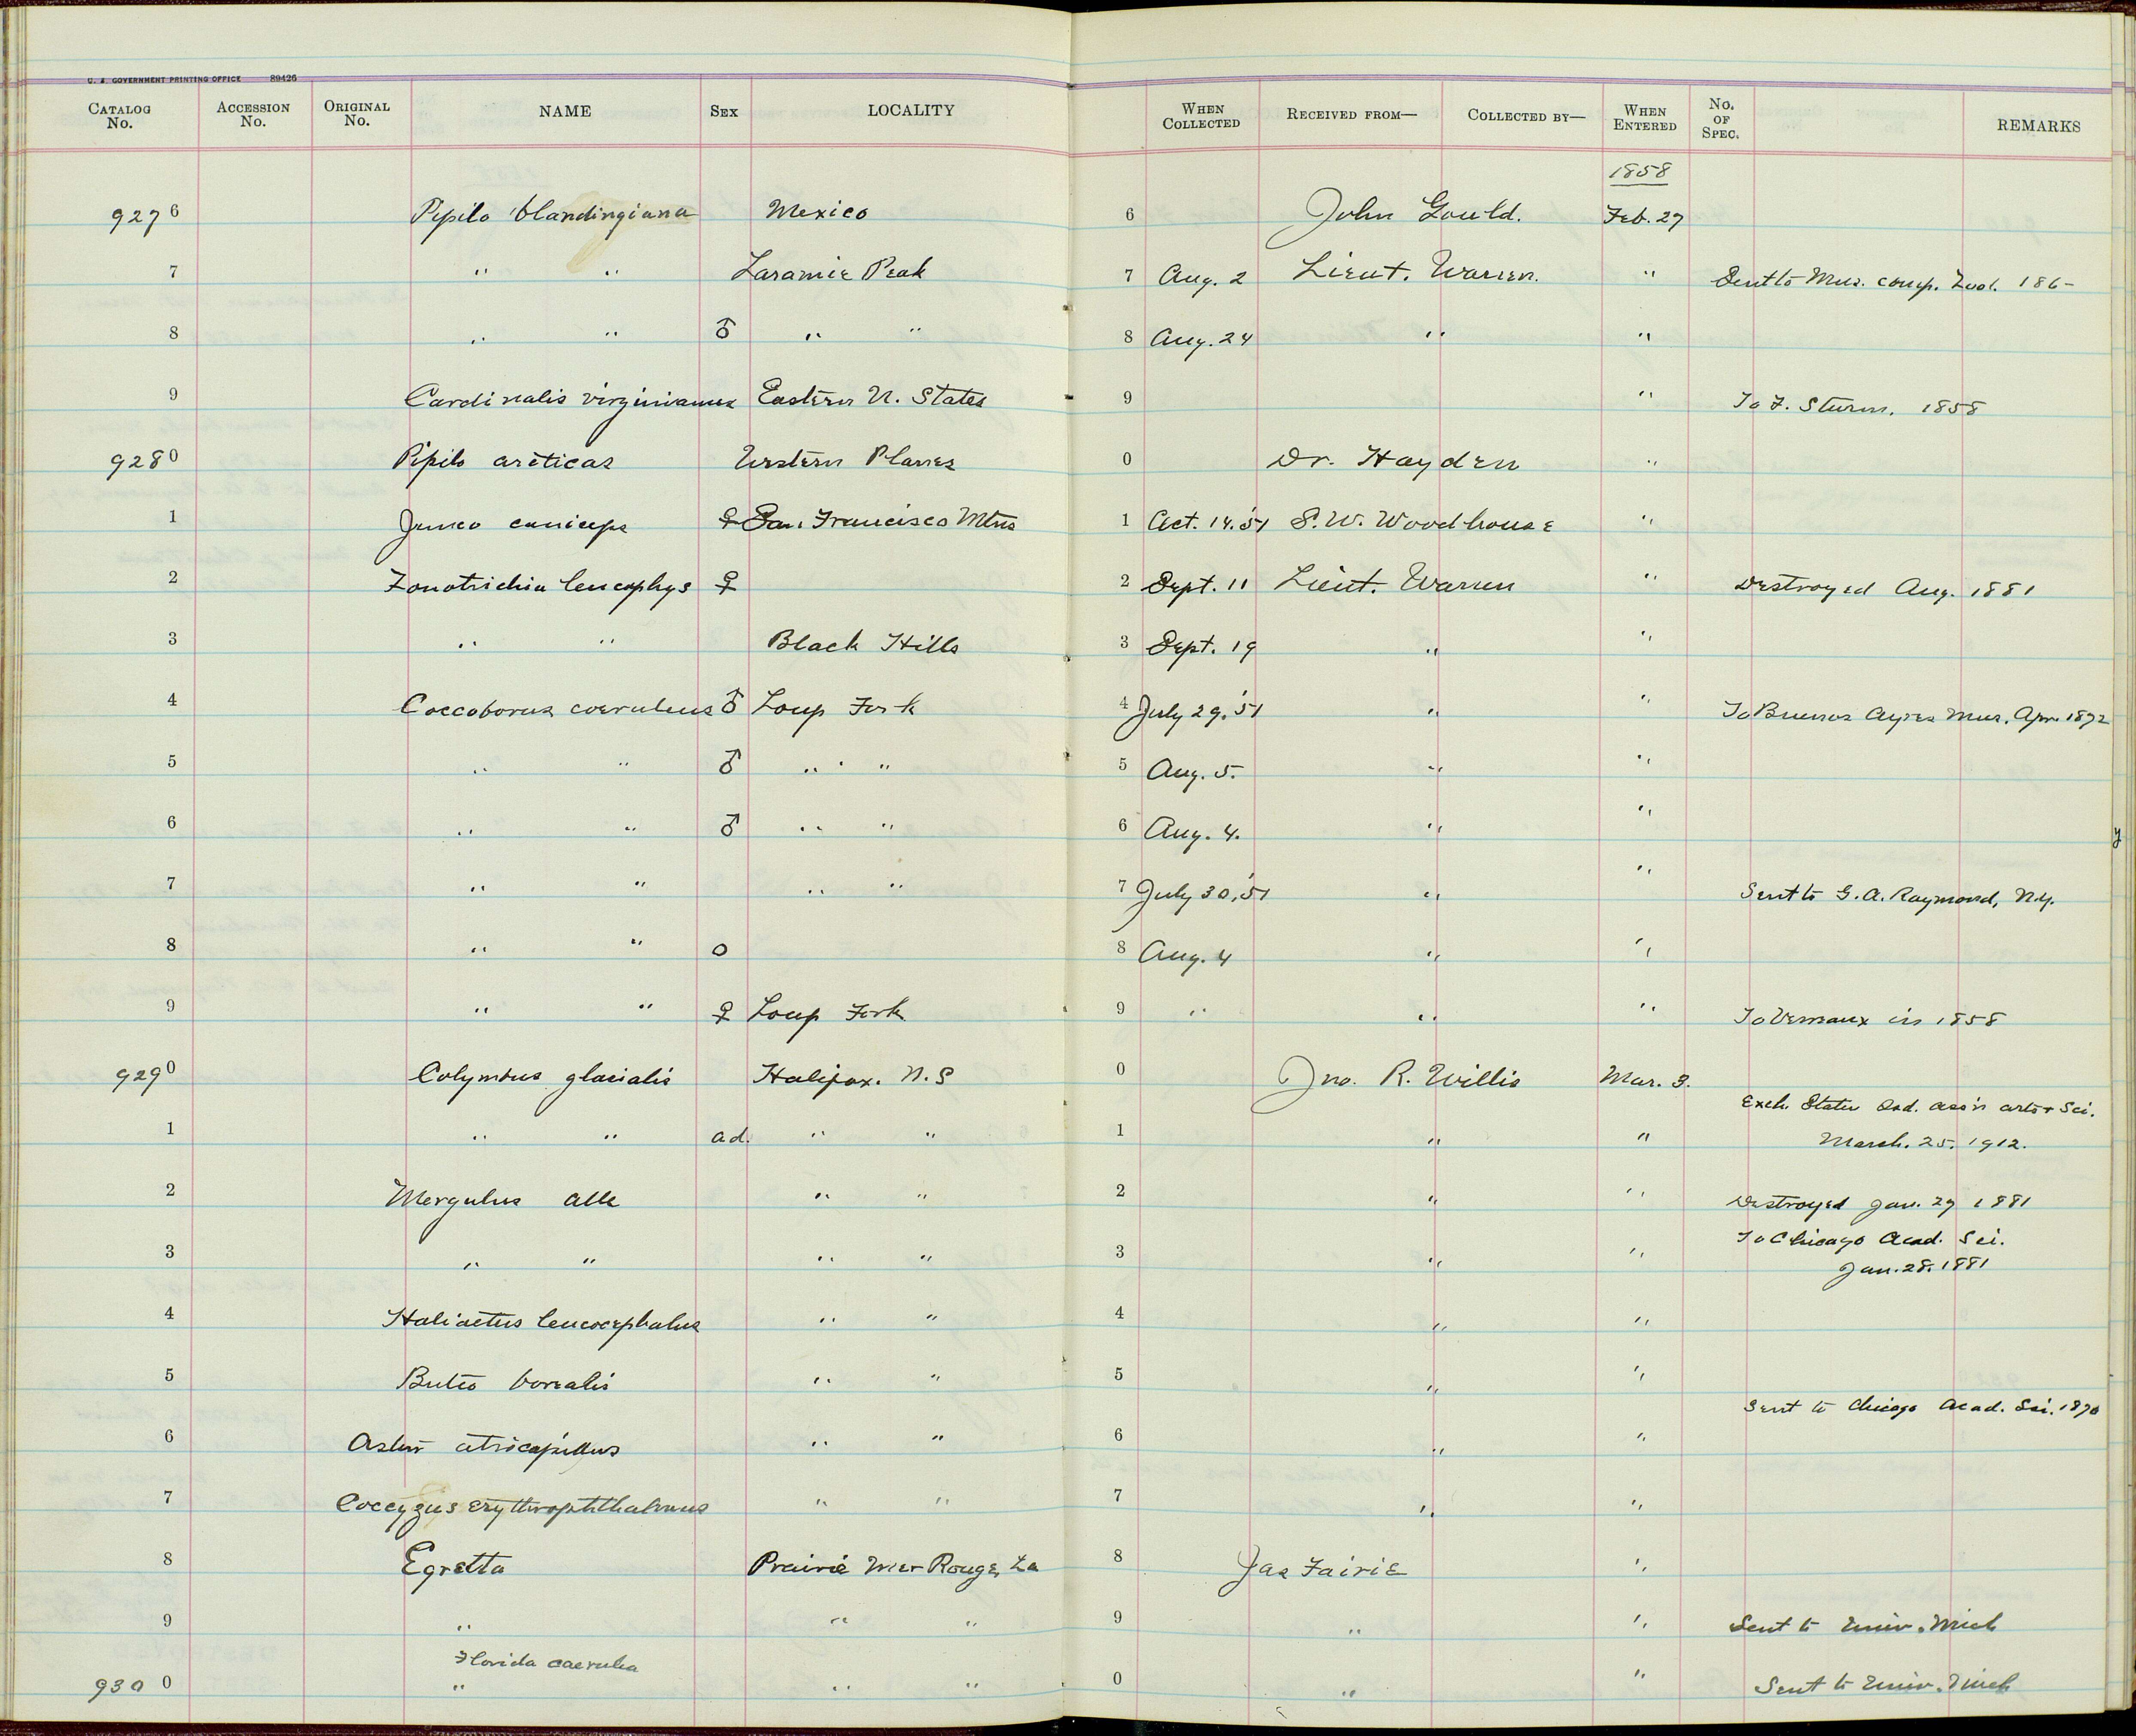 U. S. GOVERNMENT PRINTING OFFICE 89426
CATALOG No. ACCESSION No. ORIGINAL No. NAME SEX LOCALITY WHEN COLLECTED RECEIVED FROM— COLLECTED BY— WHEN ENTERED No. OF SPEC. REMARKS
1858
9276 Pipilo blandingiana Mexico 6 John Gould. Feb. 27
7 " " Laramie Peak 7 Aug. 2 Lieut. Warren. " Sent to Mus. comp. Zool. 186-
8 " " ♂ " " 8 Aug. 24 " "
9 Cardinalis virginianus Eastern U. States 9 " To F. Sturm. 1858
9280 Pipilo arcticas Western Planes 0 Dr. Hayden "
1 Junco caniceps ♀ San Francisco Mtns 1 Oct. 14. '51 S. W. Woodhouse "
2 Zonotrichia leucophys ♀ 2 Sept. 11 Lieut. Warren " Destroyed Aug. 1881
3 " " Black Hills 3 Sept. 19 " "
4 Coccoborus coeruleus ♂ Loup Fork 4 July 29, '51 " " To Buenos Ayres Mus. Apr. 1892
5 " " ♂ " " 5 Aug. 5. " "
6 " " ♂ " " 6 Aug. 4. " "
7 " " " " 7 July 30, '51 " " Sent to G. A. Raymond, N.Y.
8 " " o 8 Aug. 4 " "
9 " " ♀ Loup Fork 9 " " " To Verreaux in 1858
9290 Colymbus glacialis Halifax. N. S 0 Jno. R. Willis Mar. 3.
Exch. Staten Isd. Ass'n arts & Sci.
1 " " ad. " " 1 " " March. 25. 1912.
2 Mergulus alle " " 2 " " Destroyed Jan. 29 1881
To Chicago Acad. Sci.
3 " " " " 3 " " Jan. 28. 1881
4 Haliaetus leucocephalus " " 4 " "
5 Buteo borealis " " 5 " "
Sent to Chicago Acad. Sci. 1870
6 Astur atricapillus " " 6 " "
7 Coccyzus erythrophthalmus " " 7 " "
8 Egretta Prairie Mer Rouge, La 8 Jas Fairie "
9 " " " 9 " " Sent to Univ. Mich
Florida caerulea
9300 " " " 0 " " Sent to Univ. Mich